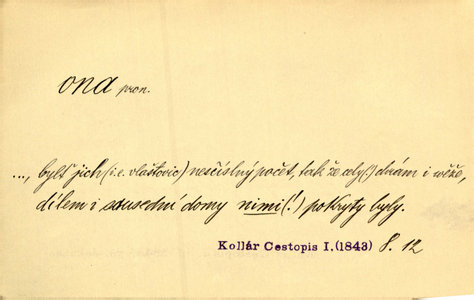 ona pron.
..., bylť jich (i.e. vlaštovic) nesčíslný počet, tak že celý (!) chrám i věže,
dílem i sousední domy nimi (!) pokryty byly.
Kollár Cestopis I. (1843) 8. 12